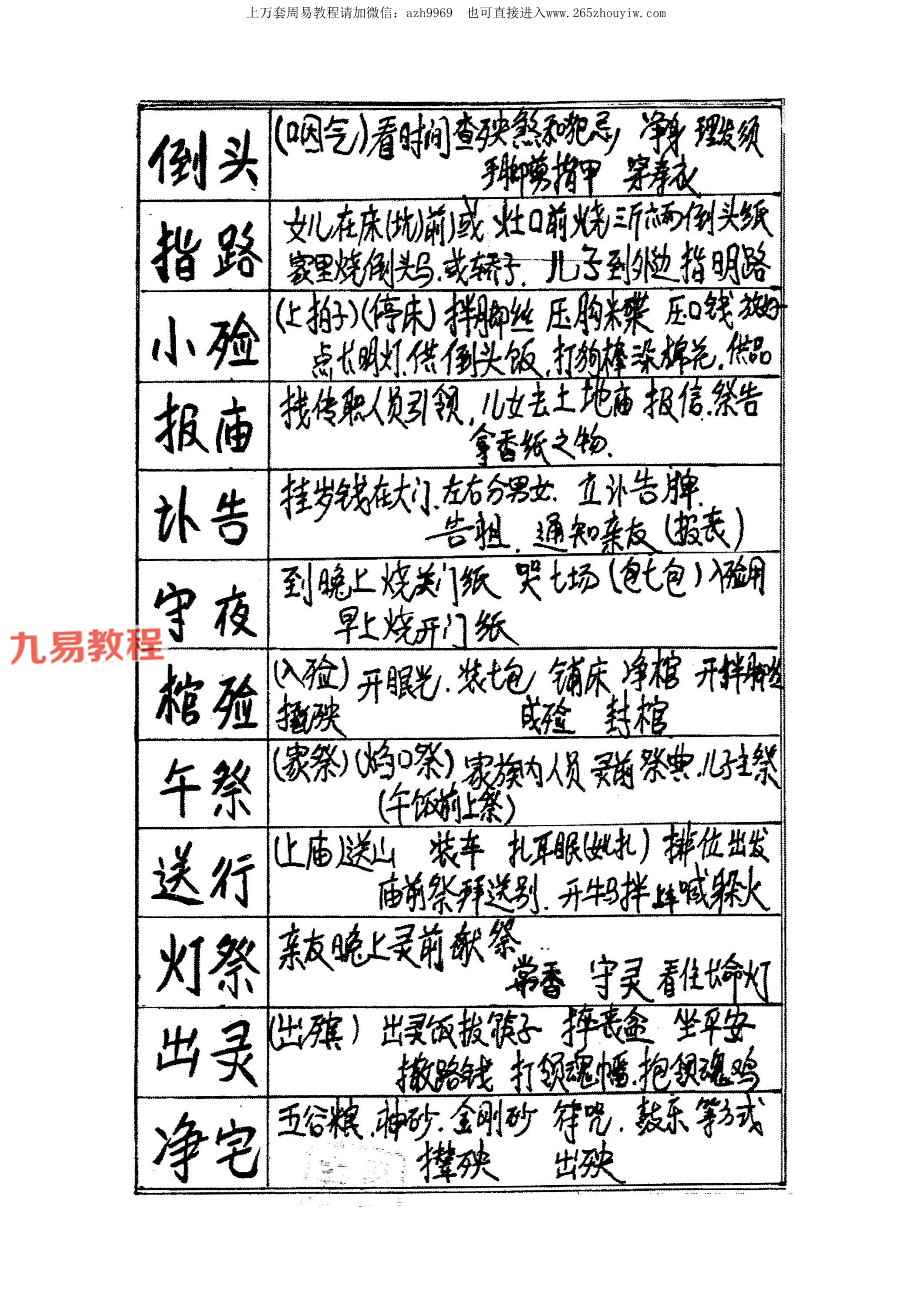 上万套周易教程请加微信：azh9969 也可直接进入www.265zhouyiw.com
倒头
(咽气)看时间查殃煞和犯忌 净身 理发须
手脚剪指甲 穿寿衣
指路
女儿在床(炕)前)或 灶口前烧三斤六两倒头纸
家里烧倒头马,或轿子. 儿子到外边指明路
小殓
(上拍子)(停床) 拌脚丝 压胸米碟 压口钱 放好
点长明灯.供倒头饭,打狗棒染棉花,供品
报庙
找传职人员引领,儿女去土地庙 报信.祭告
拿香纸之物.
讣告
挂岁钱在大门.左右分男女. 立讣告牌.
告祖. 通知亲友(报丧)
守夜
到晚上烧关门纸 哭七场 (包七包)入殓用
早上烧开门纸
九易教程
棺殓
(入殓) 开眼光.装七包 铺床 净棺 开拌脚丝
殃 成殓 封棺
午祭
(家祭)(焰口祭) 家族内人员 灵前祭典.儿子主祭
(午饭前上祭)
送行
(上庙)送山 装车 扎耳眼(女扎) 排位出发
庙前祭拜送别. 开牛马拌 上车喊躲火
灯祭
亲友晚上灵前献祭
常香 守灵 看住长命灯
出灵
(出殡) 出灵饭拔骰子 摔丧盆 坐平安
撒路钱 打领魂幡.抱领魂鸡
净宅
五谷粮.神砂.金刚砂 符咒. 鼓乐等方式
撵殃 出殃